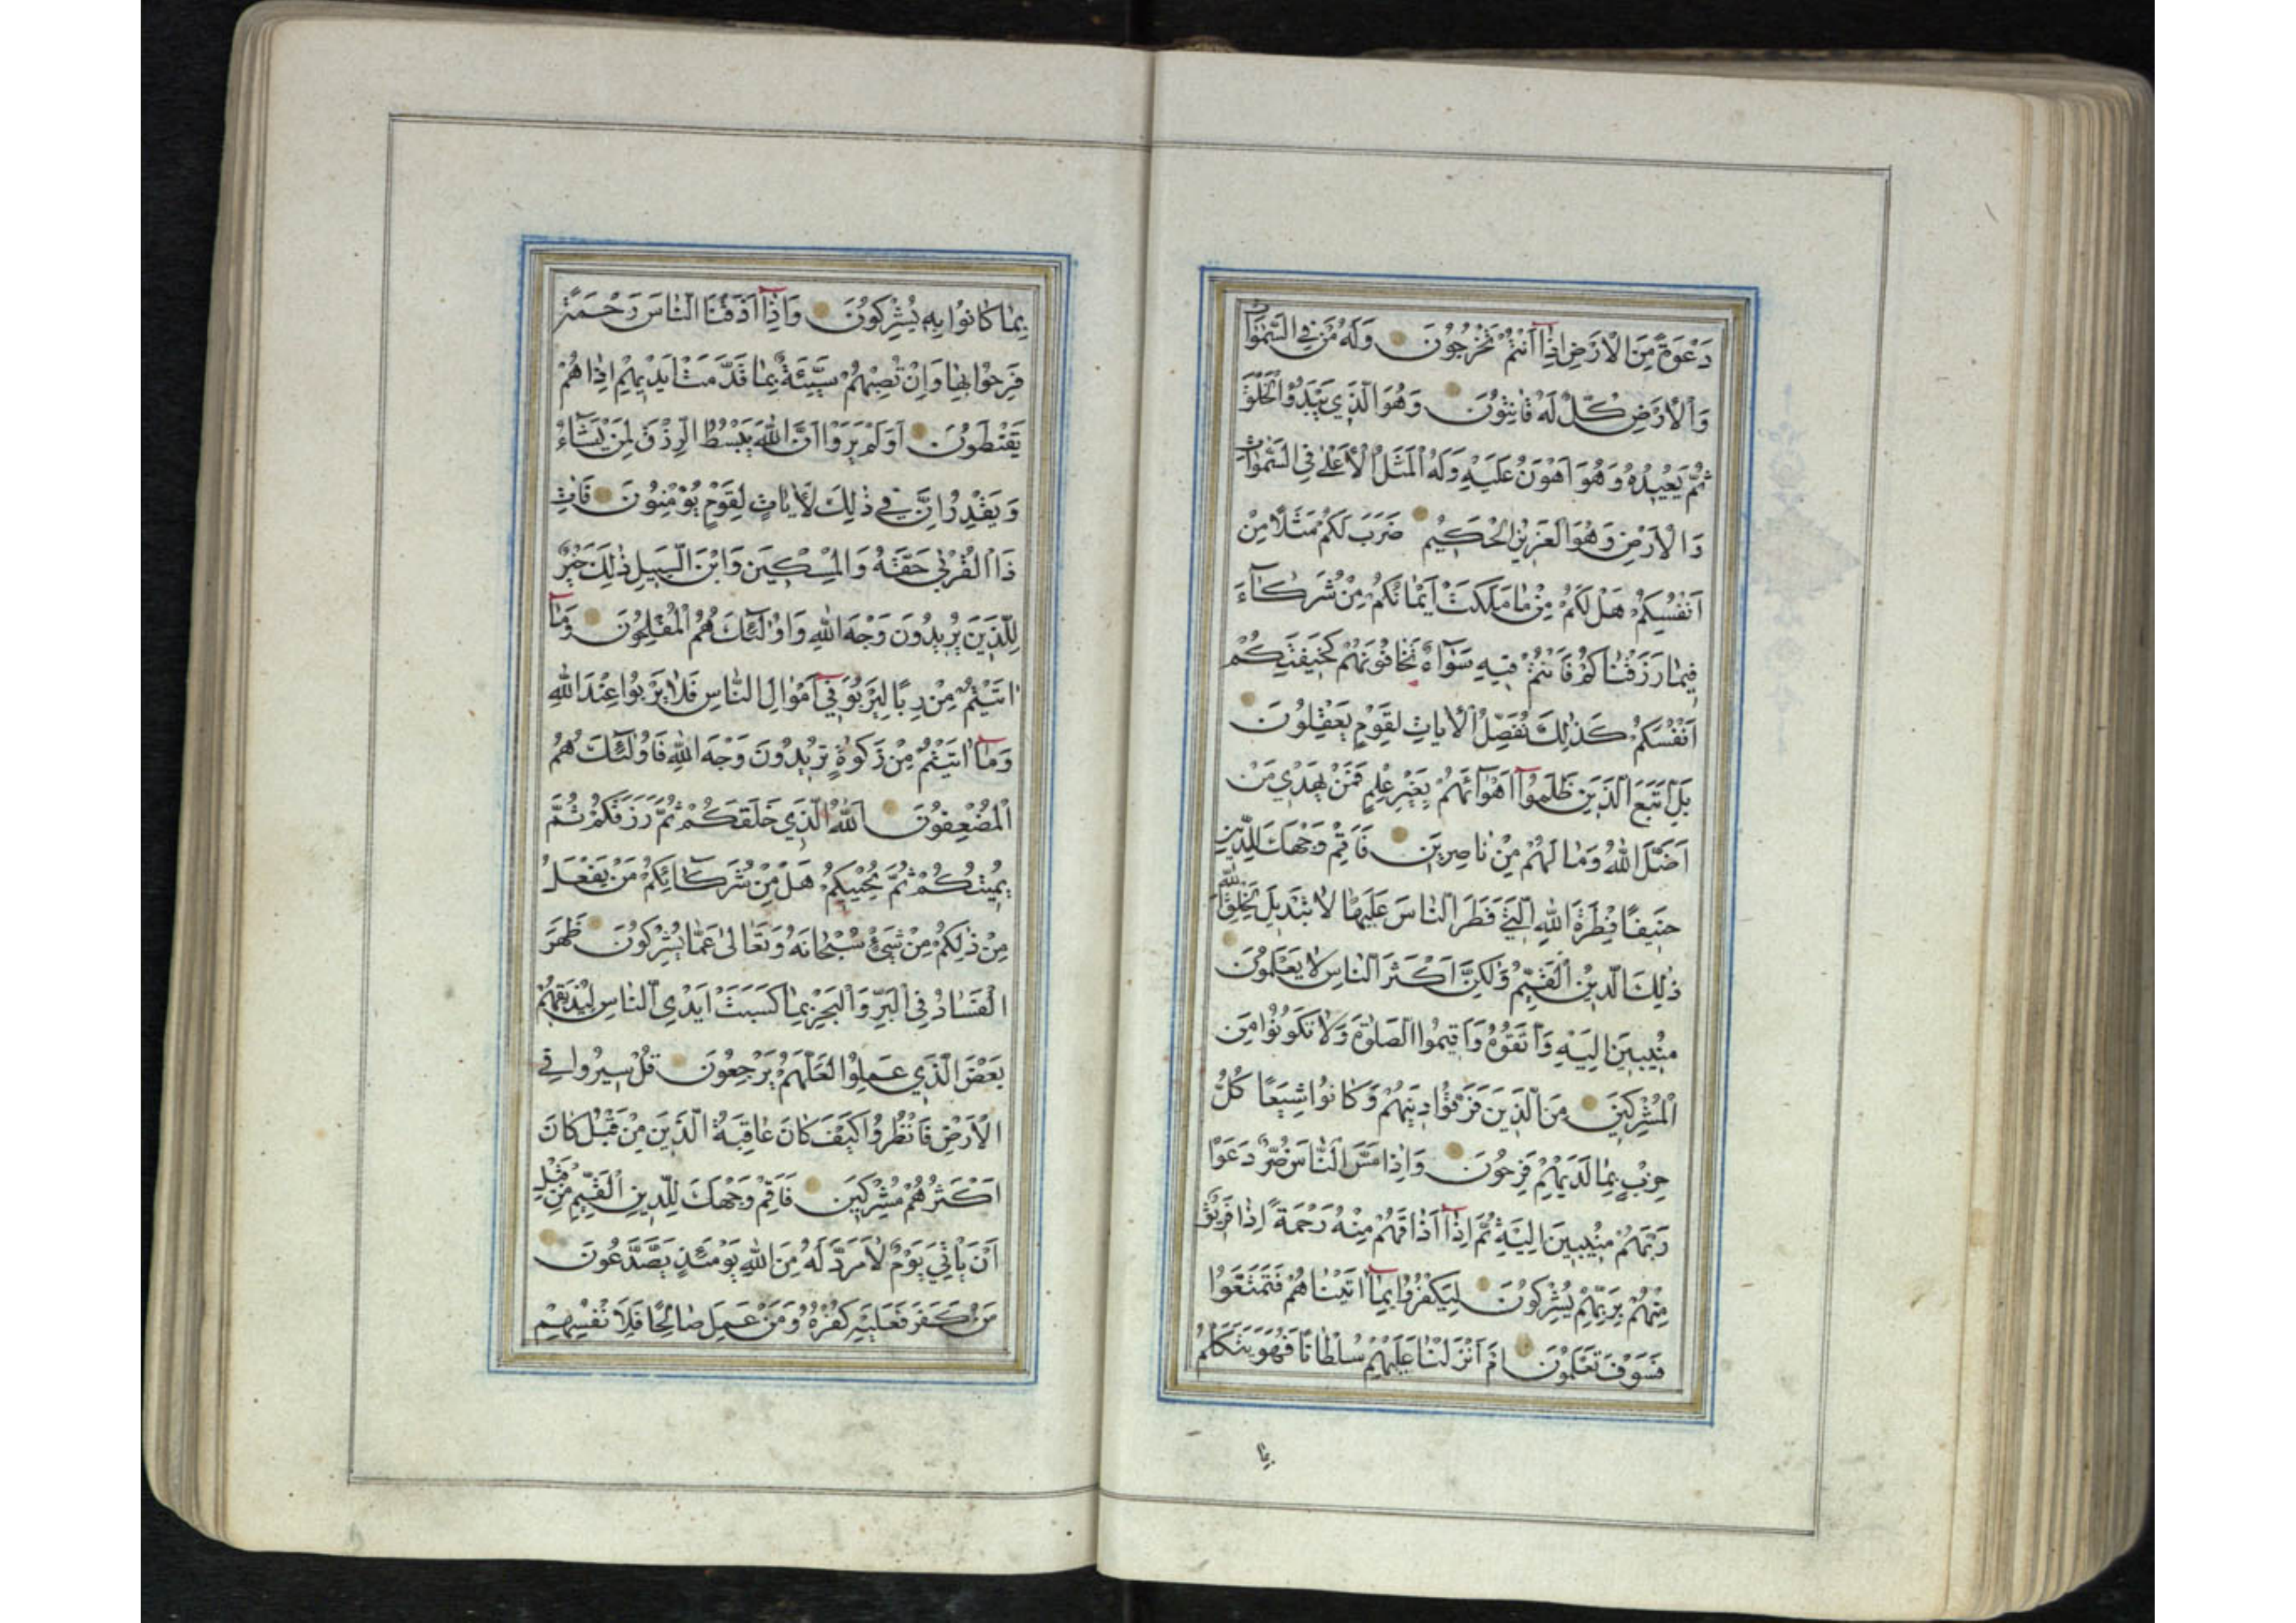 دَعْوَةً مِنَ الْاَرْضِ اِذَآ اَنْتُمْ تَخْرُجُونَ وَلَهُ مَنْ فِي السَّمٰوَاتِ
وَالْاَرْضِ كُلٌّ لَهُ قَانِتُونَ وَهُوَ الَّذِي يَبْدَؤُا الْخَلْقَ
ثُمَّ يُعِيدُهُ وَهُوَ اَهْوَنُ عَلَيْهِ وَلَهُ الْمَثَلُ الْاَعْلٰى فِي السَّمٰوَاتِ
وَالْاَرْضِ وَهُوَ الْعَزِيزُ الْحَكِيمُ ضَرَبَ لَكُمْ مَثَلًا مِنْ
اَنْفُسِكُمْ هَلْ لَكُمْ مِنْ مَا مَلَكَتْ اَيْمَانُكُمْ مِنْ شُرَكَآءَ
فِيمَا رَزَقْنَاكُمْ فَاَنْتُمْ فِيهِ سَوَآءٌ تَخَافُونَهُمْ كَخِيفَتِكُمْ
اَنْفُسَكُمْ كَذٰلِكَ نُفَصِّلُ الْاٰيَاتِ لِقَوْمٍ يَعْقِلُونَ
بَلِ اتَّبَعَ الَّذِينَ ظَلَمُوآ اَهْوَآئَهُمْ بِغَيْرِ عِلْمٍ فَمَنْ يَهْدِي مَنْ
اَضَلَّ اللّٰهُ وَمَا لَهُمْ مِنْ نَاصِرِينَ فَاَقِمْ وَجْهَكَ لِلدِّينِ
حَنِيفًا فِطْرَةَ اللّٰهِ الَّتِي فَطَرَ النَّاسَ عَلَيْهَا لَا تَبْدِيلَ لِخَلْقِ اللّٰهِ
ذٰلِكَ الدِّينُ الْقَيِّمُ وَلٰكِنَّ اَكْثَرَ النَّاسِ لَا يَعْلَمُونَ
مُنِيبِينَ اِلَيْهِ وَاتَّقُوهُ وَاَقِيمُوا الصَّلٰوةَ وَلَا تَكُونُوا مِنَ
الْمُشْرِكِينَ مِنَ الَّذِينَ فَرَّقُوا دِينَهُمْ وَكَانُوا شِيَعًا كُلُّ
حِزْبٍ بِمَا لَدَيْهِمْ فَرِحُونَ وَاِذَا مَسَّ النَّاسَ ضُرٌّ دَعَوْا
رَبَّهُمْ مُنِيبِينَ اِلَيْهِ ثُمَّ اِذَآ اَذَاقَهُمْ مِنْهُ رَحْمَةً اِذَا فَرِيقٌ
مِنْهُمْ بِرَبِّهِمْ يُشْرِكُونَ لِيَكْفُرُوا بِمَآ اٰتَيْنَاهُمْ فَتَمَتَّعُوا
فَسَوْفَ تَعْلَمُونَ اَمْ اَنْزَلْنَا عَلَيْهِمْ سُلْطَانًا فَهُوَ يَتَكَلَّمُ
بِمَا
بِمَا كَانُوا بِهِ يُشْرِكُونَ وَاِذَآ اَذَقْنَا النَّاسَ رَحْمَةً
فَرِحُوا بِهَا وَاِنْ تُصِبْهُمْ سَيِّئَةٌ بِمَا قَدَّمَتْ اَيْدِيهِمْ اِذَا هُمْ
يَقْنَطُونَ اَوَلَمْ يَرَوْا اَنَّ اللّٰهَ يَبْسُطُ الرِّزْقَ لِمَنْ يَشَآءُ
وَيَقْدِرُ اِنَّ فِي ذٰلِكَ لَاٰيَاتٍ لِقَوْمٍ يُؤْمِنُونَ فَاٰتِ
ذَا الْقُرْبٰى حَقَّهُ وَالْمِسْكِينَ وَابْنَ السَّبِيلِ ذٰلِكَ خَيْرٌ
لِلَّذِينَ يُرِيدُونَ وَجْهَ اللّٰهِ وَاُولٰٓئِكَ هُمُ الْمُفْلِحُونَ وَمَآ
اٰتَيْتُمْ مِنْ رِبًا لِيَرْبُوَ فِيٓ اَمْوَالِ النَّاسِ فَلَا يَرْبُوا عِنْدَ اللّٰهِ
وَمَآ اٰتَيْتُمْ مِنْ زَكٰوةٍ تُرِيدُونَ وَجْهَ اللّٰهِ فَاُولٰٓئِكَ هُمُ
الْمُضْعِفُونَ اَللّٰهُ الَّذِي خَلَقَكُمْ ثُمَّ رَزَقَكُمْ ثُمَّ
يُمِيتُكُمْ ثُمَّ يُحْيِيكُمْ هَلْ مِنْ شُرَكَآئِكُمْ مَنْ يَفْعَلُ
مِنْ ذٰلِكُمْ مِنْ شَيْءٍ سُبْحَانَهُ وَتَعَالٰى عَمَّا يُشْرِكُونَ ظَهَرَ
الْفَسَادُ فِي الْبَرِّ وَالْبَحْرِ بِمَا كَسَبَتْ اَيْدِي النَّاسِ لِيُذِيقَهُمْ
بَعْضَ الَّذِي عَمِلُوا لَعَلَّهُمْ يَرْجِعُونَ قُلْ سِيرُوا فِي
الْاَرْضِ فَانْظُرُوا كَيْفَ كَانَ عَاقِبَةُ الَّذِينَ مِنْ قَبْلُ كَانَ
اَكْثَرُهُمْ مُشْرِكِينَ فَاَقِمْ وَجْهَكَ لِلدِّينِ الْقَيِّمِ مِنْ قَبْلِ
اَنْ يَاْتِيَ يَوْمٌ لَا مَرَدَّ لَهُ مِنَ اللّٰهِ يَوْمَئِذٍ يَصَّدَّعُونَ
مَنْ كَفَرَ فَعَلَيْهِ كُفْرُهُ وَمَنْ عَمِلَ صَالِحًا فَلِاَنْفُسِهِمْ